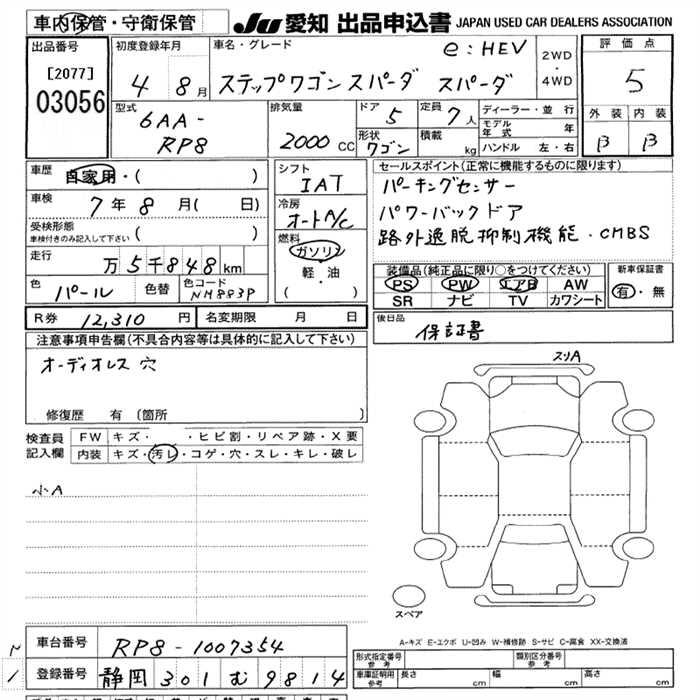 車内保管・守衛保管
JU 愛知 出品申込書 JAPAN USED CAR DEALERS ASSOCIATION
出品番号
[2077]
03056
初度登録年月
4 8 月
車名・グレード
e:HEV
ステップワゴンスパーダ スパーダ
2WD
・
4WD
評価点
5
外装 内装
B B
型式
6AA-
RP8
排気量
2000 CC
ドア 5
形状
ワゴン
定員 7 人
積載 kg
ディーラー・並 行
モデル年式 年
ハンドル 左・右
車歴 自家用・( )
車検 7 年 8 月( 日)
受検形態
車検付きのみ記入して下さい ( )
走行
万 5 千 8 4 8 km
色
パール
色替
色コード
NH883P
シフト
IAT
冷房
オートA/C
燃料
ガソリン
軽・油
( )
セールスポイント(正常に機能するものに限ります)
パーキングセンサー
パワーバックドア
路外逸脱抑制機能・CMBS
装備品(純正品に限り○をつけてください)
PS PW エアB AW
SR ナビ TV カワシート
新車保証書
有・無
R券 12,310 円 名変期限 月 日
後日品
保証書
注意事項申告欄(不具合内容等は具体的に記入して下さい)
オーディオレス 穴
修復歴 有 〔箇所 〕
検査員
記入欄
FW キズ・ ・ヒビ割・リペア跡・X要
内装 キズ・汚レ・コゲ・穴・スレ・キレ・破レ
小A
スリA
スペア
A-キズ E-エクボ U-凹み W-補修跡 S-サビ C-腐食 XX-交換済
車台番号 RP8-1007354
登録番号 静岡 301 む 9814
形式指定番号
参考
類別区分番号
参考
車庫証明用
参考
長さ cm 幅 cm 高さ cm